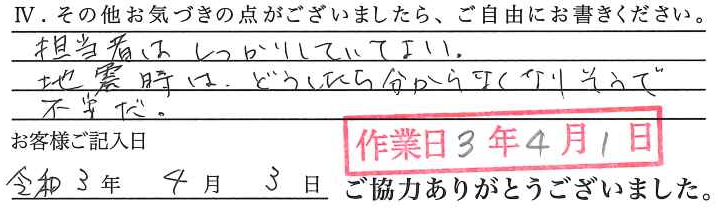 Ⅳ．その他お気づきの点がございましたら、ご自由にお書きください。
担当者はしっかりしていてよい。
地震時は、どうしたら分からなくなりそうで
不安だ。
お客様ご記入日
作業日3年4月1日
令和3年4月3日 ご協力ありがとうございました。